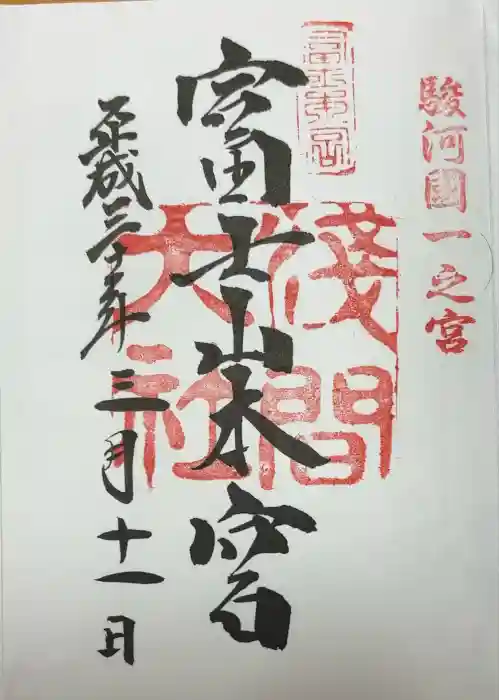 駿河國一之宮
富士山本宮
富士山本宮
淺間
大社
平成三十年三月十一日